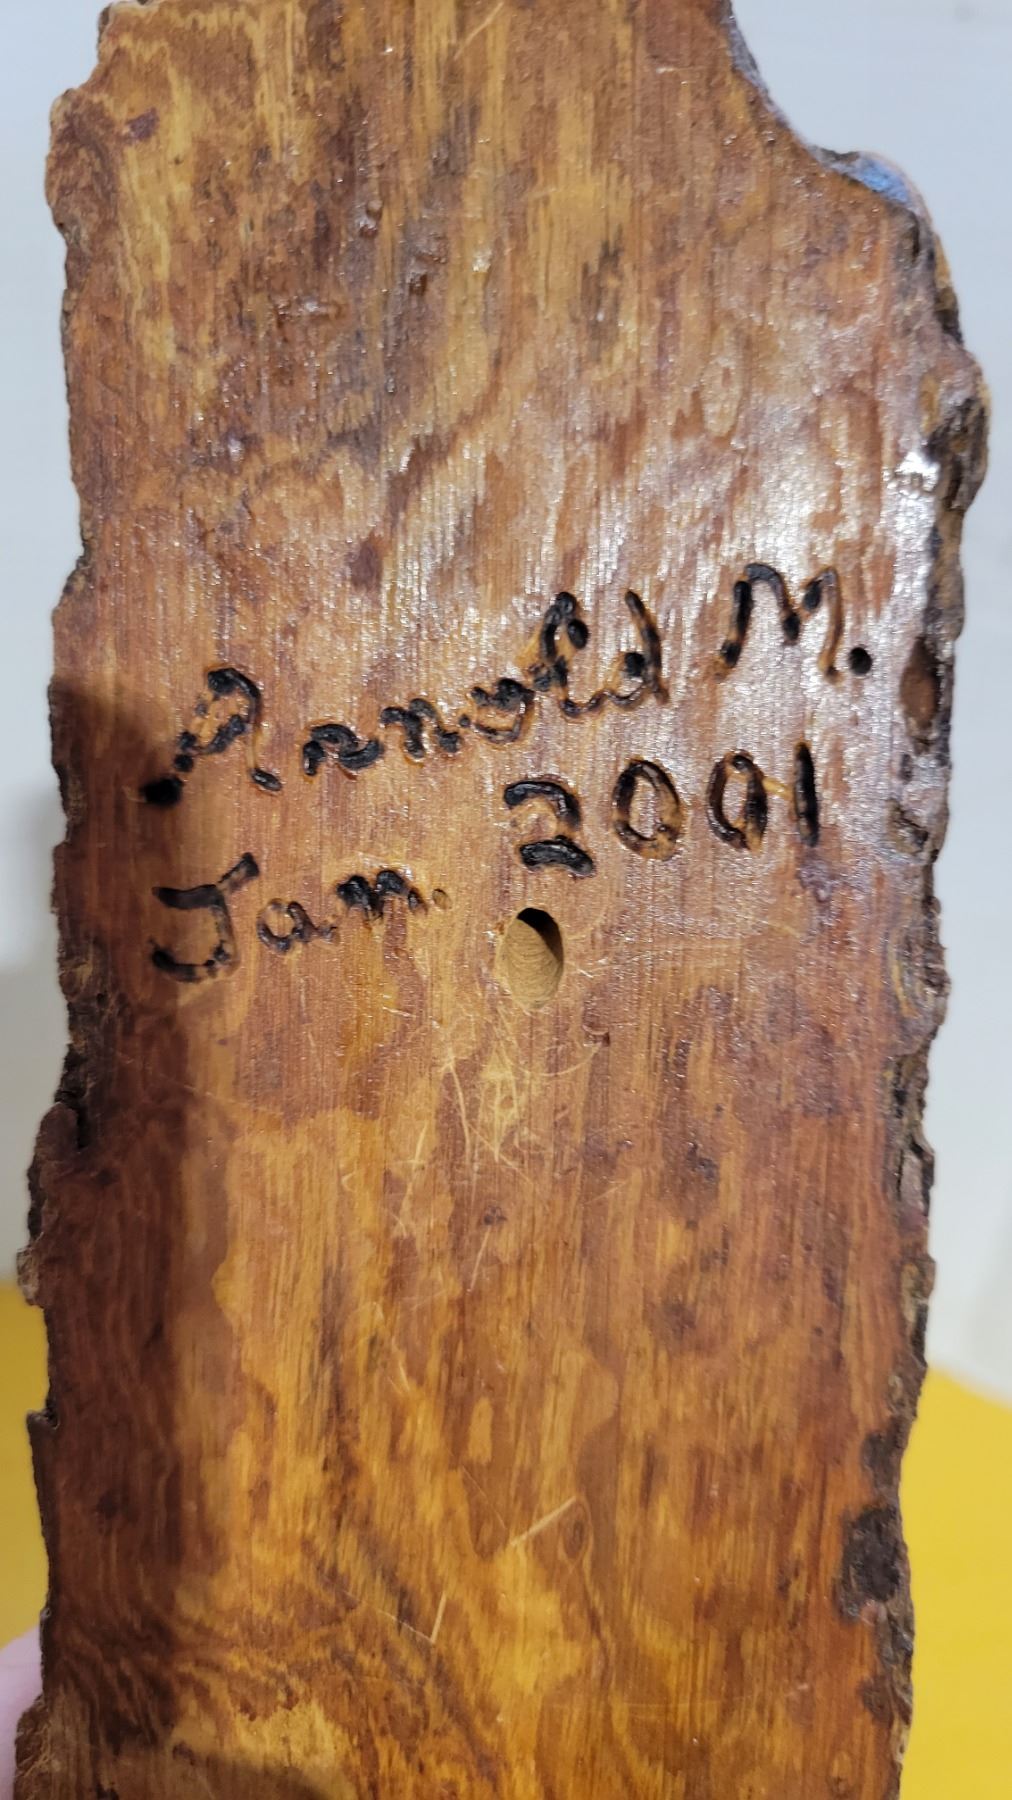 Arnold M.
Jan. 2001